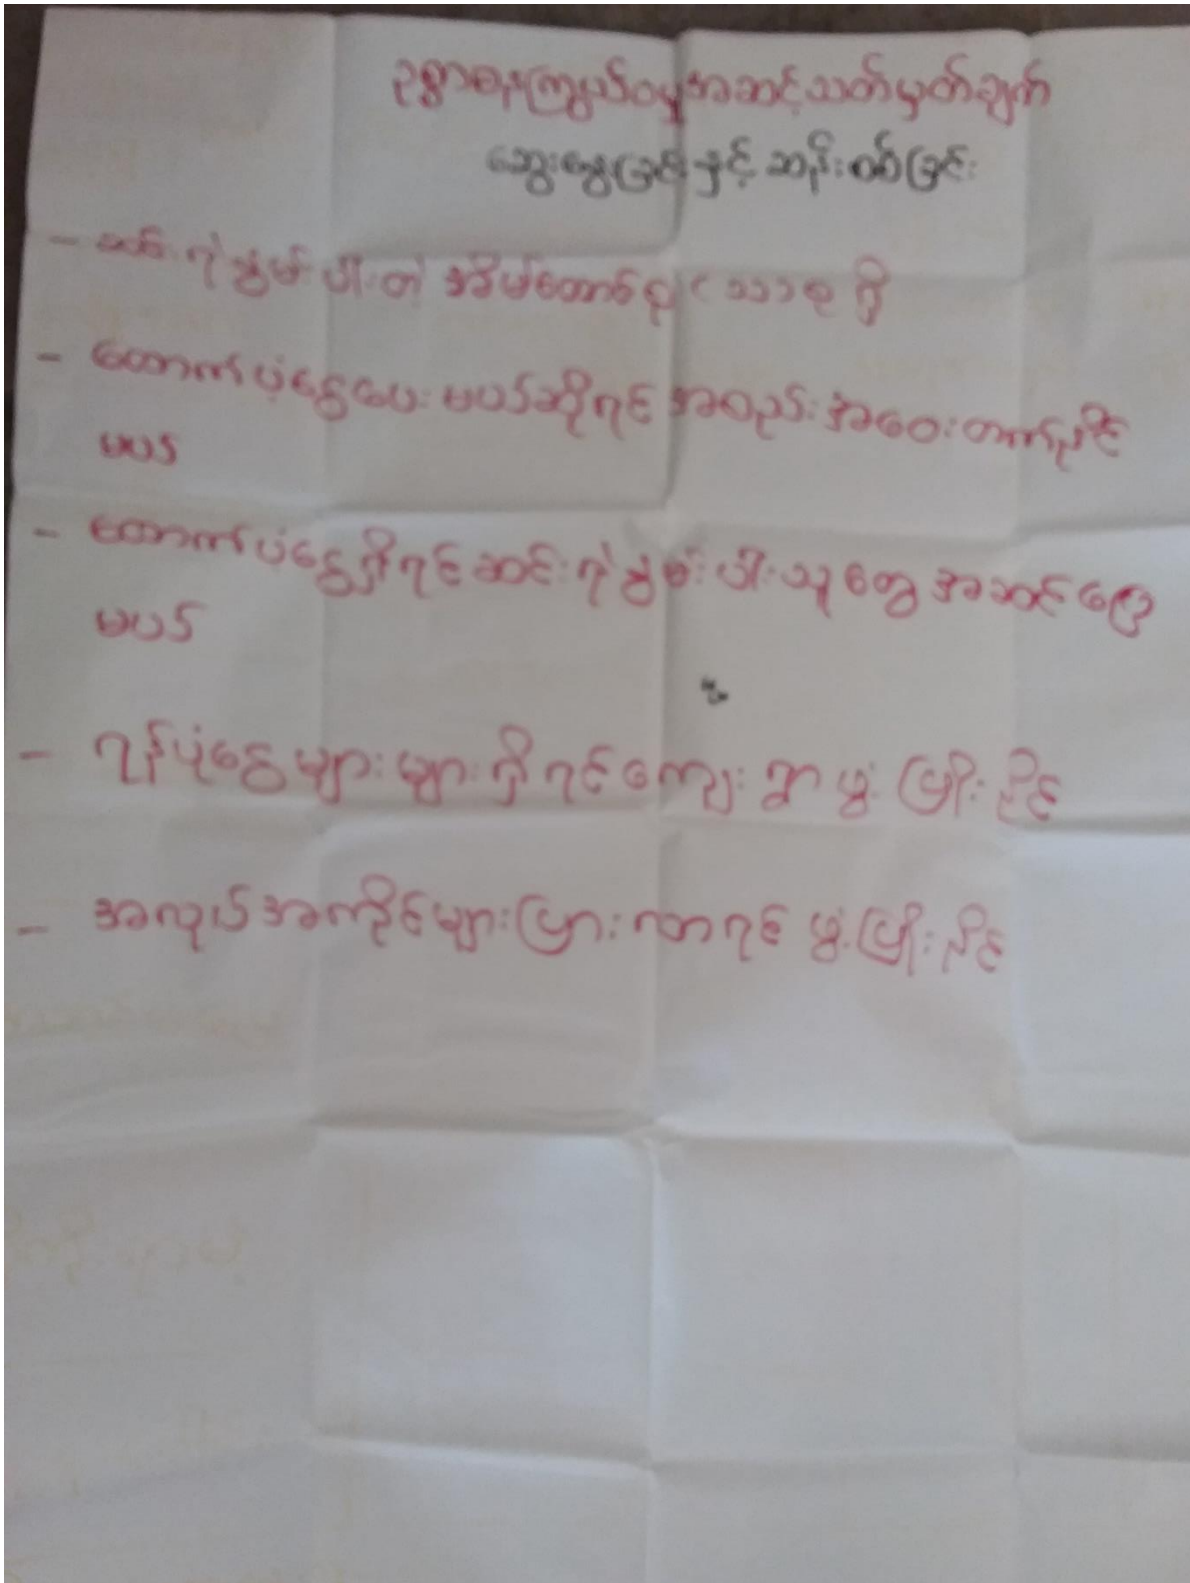 ဥစ္စာဓနကြွယ်ဝမှုအဆင့်သတ်မှတ်ချက်
ဆွေးနွေးခြင်းနှင့် ဆန်းစစ်ခြင်း
- ဆင်းရဲနွမ်းပါးတဲ့ အိမ်ထောင်စု ၁၁၁ စု ရှိ
- ထောက်ပံ့ငွေပေးမယ်ဆိုရင် အစည်းအဝေးတက်နိုင်
မယ်
- ထောက်ပံ့ငွေရှိရင်ဆင်းရဲနွမ်းပါးသူတွေအဆင်ပြေ
မယ်
- ရန်ပုံငွေများများရှိရင်ကျေးရွာဖွံ့ဖြိုးနိုင်
- အလုပ်အကိုင်များပြားလာရင် ဖွံ့ဖြိုးနိုင်